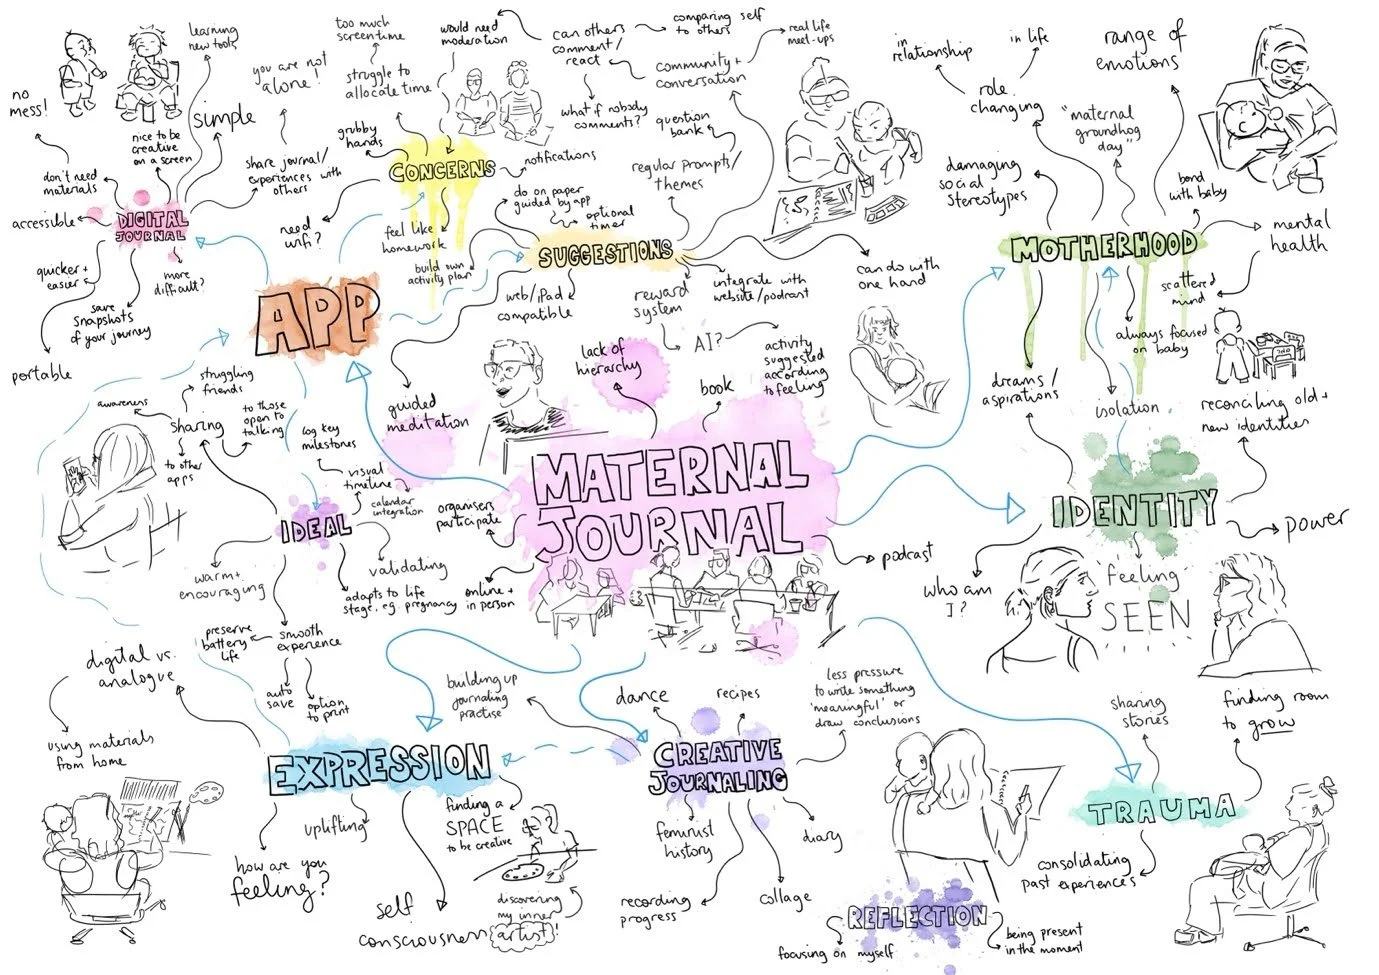 learning
new tools
no
mess!
nice to be
creative
on a screen
simple
don't need
materials
accessible
DIGITAL
JOURNAL
quicker +
easier
more
difficult?
save
snapshots
of your journey
portable
you are not
alone!
share journal/
experiences with
others
too much
screentime
struggle to
allocate time
would need
moderation
grubby
hands
CONCERNS
notifications
need
wifi?
feel like
homework
build own
activity plan
APP
can others
comment/
react
comparing self
to others
what if nobody
comments?
community +
conversation
real life
meet-ups
question
bank
regular prompts/
themes
do on paper
guided by app
optional
timer
SUGGESTIONS
web/iPad
compatible
reward
system
integrate with
website/podcast
can do with
one hand
AI?
activity
suggested
according
to feeling
guided
meditation
in
relationship
in life
role
changing
range of
emotions
"maternal
groundhog
day"
damaging
social
stereotypes
bond
with baby
MOTHERHOOD
mental
health
scattered
mind
always focused
on baby
isolation
dreams/
aspirations
reconciling old +
new identities
IDENTITY
power
who am
I?
feeling
SEEN
lack of
hierarchy
book
MATERNAL
JOURNAL
organisers
participate
online +
in person
podcast
awareness
struggling
friends
sharing
to those
open to
talking
to other
apps
log key
milestones
visual
timeline
calendar
integration
IDEAL
validating
warm +
encouraging
adapts to life
stage. eg. pregnancy
preserve
battery
life
smooth
experience
auto
save
option
to print
digital vs.
analogue
using materials
from home
EXPRESSION
building up
journaling
practise
uplifting
how are you
feeling?
finding a
SPACE
to be creative
self
consciousness
discovering
my inner
artist!
dance
recipes
less pressure
to write something
'meaningful' or
draw conclusions
CREATIVE
JOURNALING
feminist
history
diary
recording
progress
collage
sharing
stories
finding room
to grow
TRAUMA
consolidating
past experiences
REFLECTION
focusing on myself
being present
in the moment